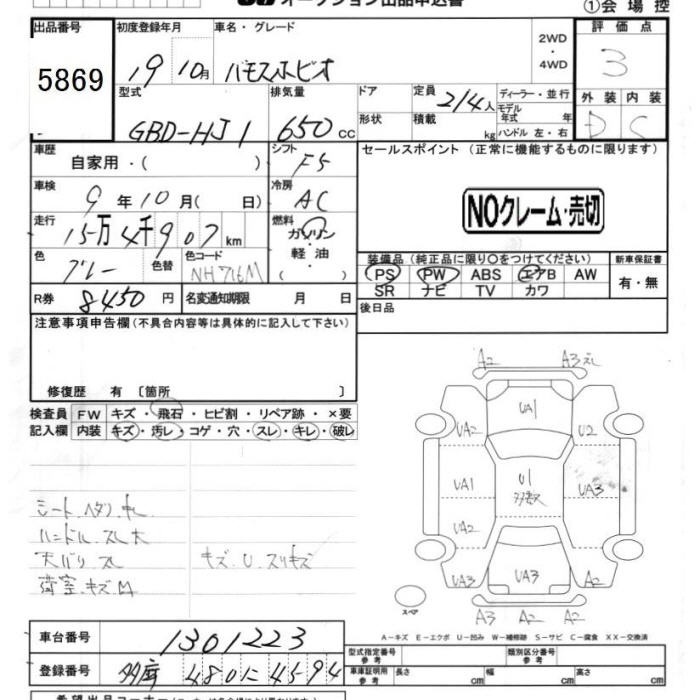 オークション出品申込書
①会場控
出品番号 初度登録年月 車名・グレード 2WD・4WD 評価点
5869 19 10月 バモスホビオ 3
型式 排気量 ドア 定員 2/4人 ディーラー・並行 外装 内装
GBD-HJ1 650cc 形状 積載 kg モデル年式 年 D C
ハンドル 左・右
車歴 自家用・( ) シフト F5 セールスポイント (正常に機能するものに限ります)
車検 9年10月( 日) 冷房 AC
NOクレーム・売切
走行 15万4千907km 燃料 ガソリン・軽油・( )
色 グレー 色替 色コード NH716M
装備品(純正品に限り○をつけてください) 新車保証書
PS PW ABS エアB AW 有・無
SR ナビ TV カワ
R券 8450円 名変通知期限 月 日 後日品
注意事項申告欄(不具合内容等は具体的に記入して下さい)
修復歴 有 [箇所 ]
検査員 FW キズ・飛石・ヒビ割・リペア跡・×要
記入欄 内装 キズ・汚レ・コゲ・穴・スレ・キレ・破レ
A2 A3
UA1
UA2 U2
UA1 U1 多数 UA3
UA2
UA3 UA3 UA2
A3 A2 A2
シート ヘタリ
ハンドル スレ大
天バリ スレ キズ U スリキズ
荷室 キズ M
スペア
A-キズ E-エクボ U-凹み W-補修跡 S-サビ C-腐食 XX-交換済
車台番号 1301223 型式指定番号 参考 類別区分番号 参考
登録番号 多摩 480 に 45-94 車庫証明用 参考 長さ cm 幅 cm 高さ cm